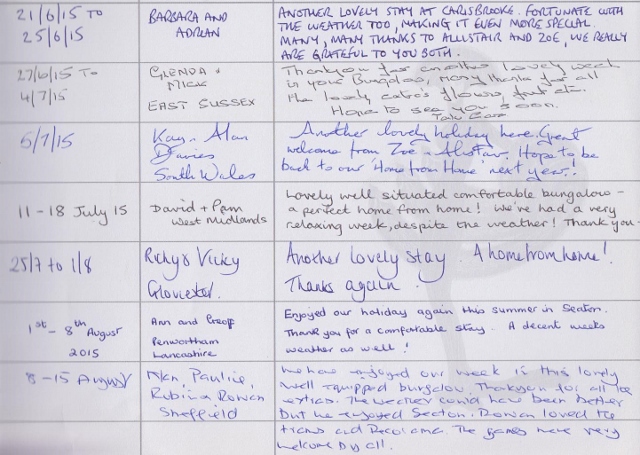 21/6/15 TO
25/6/15
BARBARA AND
ADRIAN
ANOTHER LOVELY STAY AT CARISBROOKE. FORTUNATE WITH
THE WEATHER TOO, MAKING IT EVEN MORE SPECIAL.
MANY, MANY THANKS TO ALLISTAIR AND ZOE, WE REALLY
ARE GRATEFUL TO YOU BOTH.
27/6/15 TO
4/7/15
GLENDA &
MICK
EAST SUSSEX
Thankyou for another lovely week
in your Bungalow, many thanks for all
the lovely extra's flowers, fruit etc.
Hope to see you soon.
Take Care
5/7/15
Kay & Alan
Davies
South Wales
Another lovely holiday here. Great
welcome from Zoe & Alistair. Hope to be
back to our 'Home from Home' next year!
11 - 18 July 15
David + Pam
West Midlands
Lovely well situated comfortable bungalow -
a perfect home from home! We've had a very
relaxing week, despite the weather! Thank you -
25/7 to 1/8
Ricky & Vicky
Gloucester.
Another lovely stay. A home from home!
Thanks again.
1st - 8th August
2015
Ann and Geoff
Penwortham
Lancashire
Enjoyed our holiday again this summer in Seaton.
Thank you for a comfortable stay. A decent weeks
weather as well!
8 - 15 August
Pauline,
Rowan
Sheffield
We have enjoyed our week in this lovely
well equipped bungalow. Thankyou for all the
extras. The weather could have been better
but we enjoyed Seaton. Rowan loved the
trams and The games were very
welcome by all.